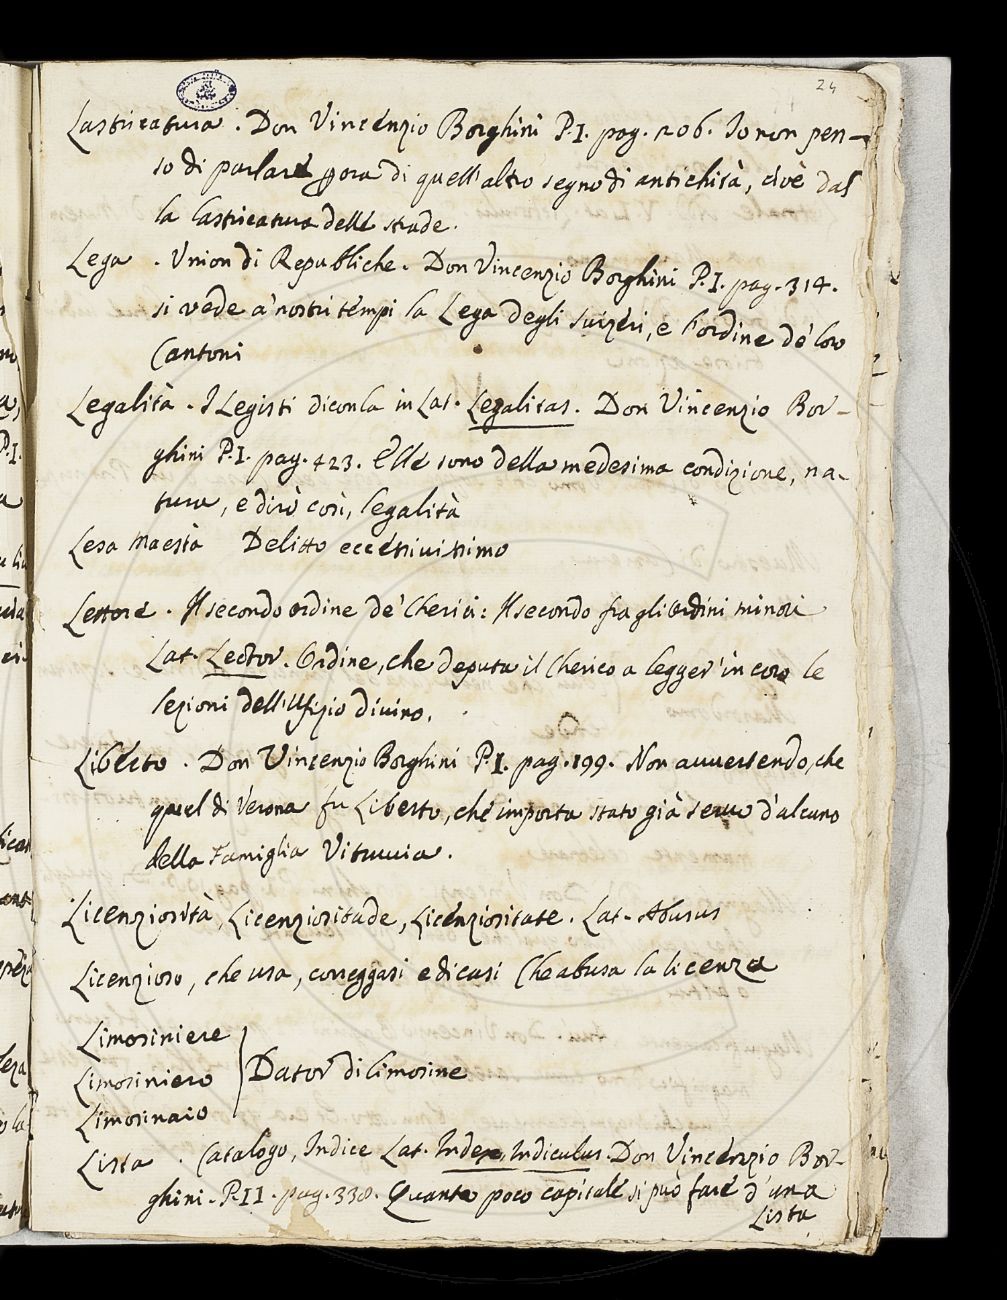 24
Lastricatura. Don Vincenzio Borghini P.I. pag. 206. Io non pen-
so di parlare gora di quell'altro segno di antichità, cioè dal
la lastricatura delle strade.
Lega. Union di Republiche. Don Vincenzio Borghini P.I. pag. 314.
si vede a' nostri tempi la Lega degli Suizzeri, e l'ordine de' loro
Cantoni
Legalità. I Legisti diconla in Lat. Legalitas. Don Vincenzio Bor-
ghini P.I. pag. 423. Elle sono della medesima condizione, na-
tura, e dirò così, legalità
Lesa Maestà Delitto eccessivissimo
Lettore. Il secondo ordine de' Cherici: Il secondo fra gli ordini minori
Lat. Lector. Ordine, che deputa il Cherico a legger' in coro le
lezioni dell'Ufizio divino.
Liberto. Don Vincenzio Borghini P.I. pag. 199. Non avvertendo, che
quel di Verona fu Liberto, che importa stato già servo d'alcuno
della Famiglia Vitruvia.
Licenziosità, Licenziositade, Licenziositate. Lat. Abusus
Licenzioso, che usa, correggasi e dicasi Che abusa la licenza
Limosiniere
Limosiniero } Dator di limosine
Limosinaio
Lista. Catalogo, Indice Lat. Index, Indiculus. Don Vincenzio Bor-
ghini. P.II. pag. 338. Quanto poco capitale si può fare d'una
Lista